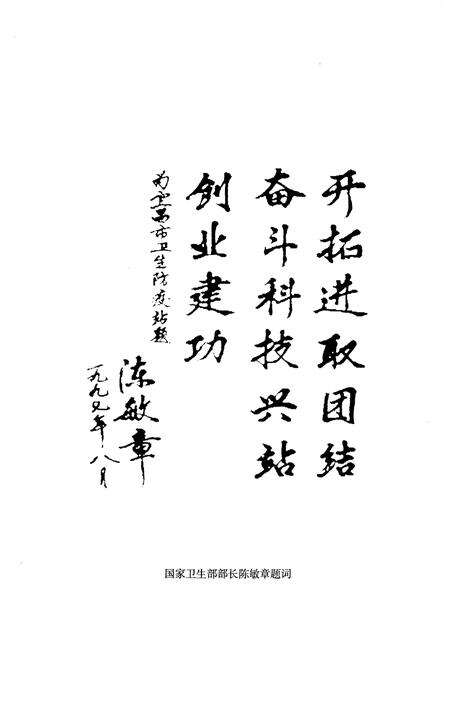 开拓进取团结
奋斗科技兴站
创业建功
为市卫生防疫站题
陈敏章
一九九年八月
国家卫生部部长陈敏章题词